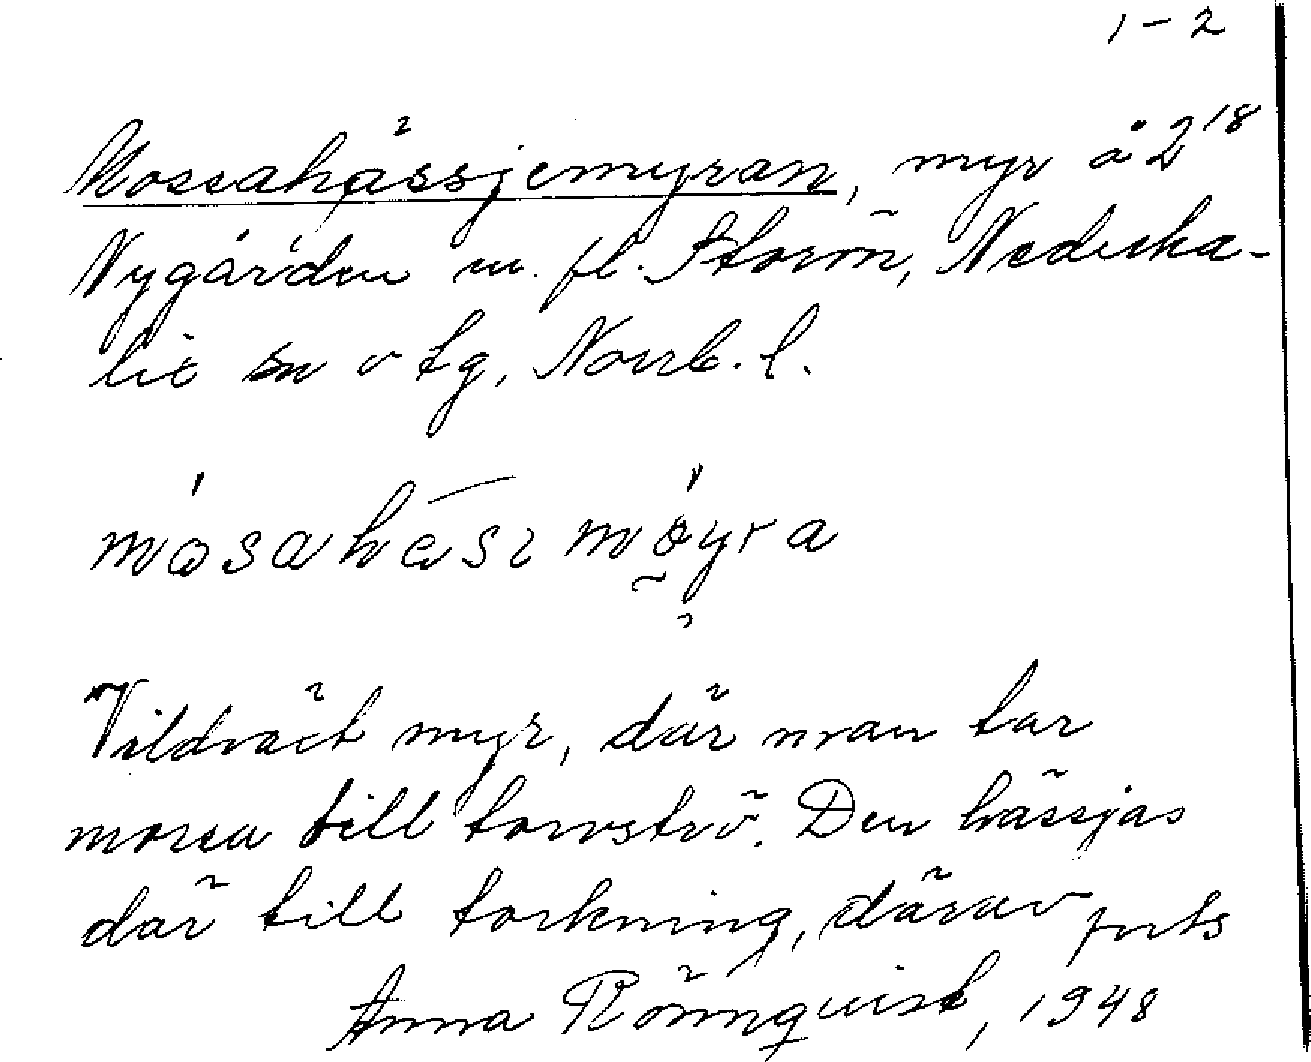 1-2
Mossahässjemyran, myr å 2¹⁸
Nygården m. fl. Storön, Nederka-
lix sn o tg, Norrb. l.
mosahäsı möyra
Vildväxt myr, där man tar
mossa till torvströ. Den hässjas
där till torkning, därav forts
Anna Rönnqvist, 1948